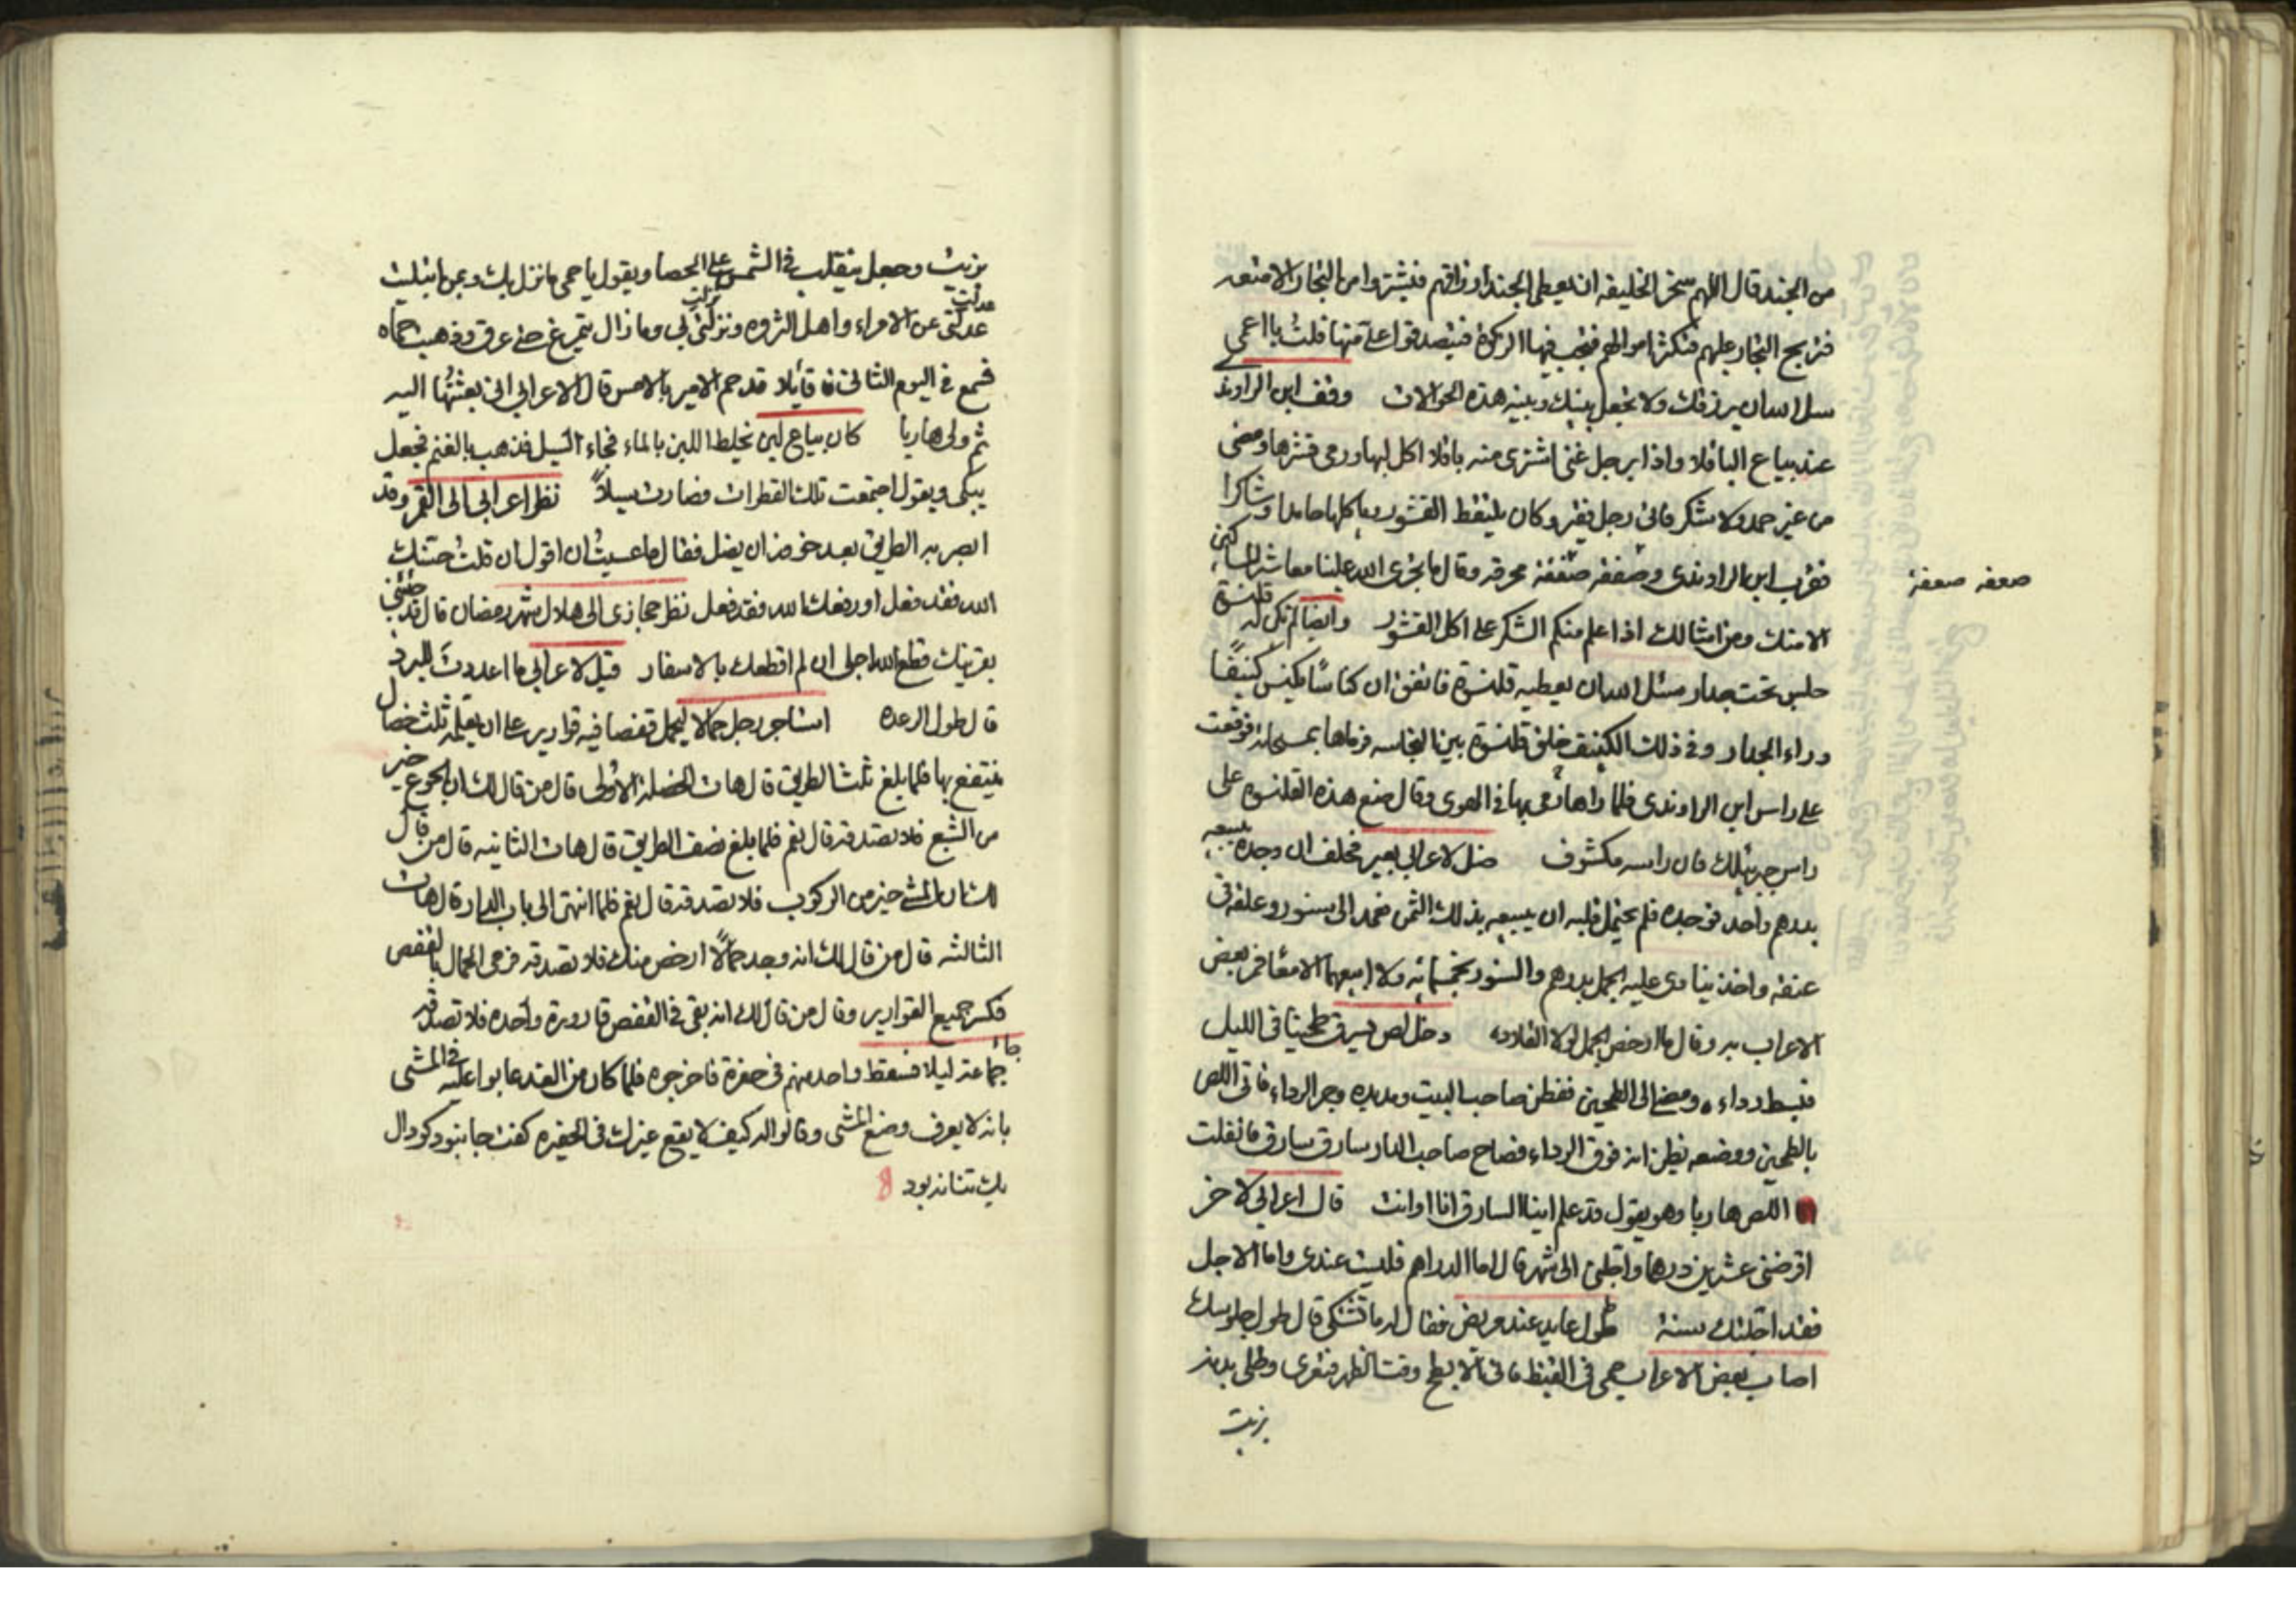 من الجند قال اللهم سخر الخليفه ان يعطى الجند ارزاقهم فيشتروا من التجار الامتعه
فتربح التجار عليهم فتكثر اموالهم فتجب فيها الزكوة فيتصدقوا على منها فقلت يا اعمى
سل الله ان يرزقك ولا تجعل بينك وبينه هذه الحوالات وقف ابن الراوند
عند بياع الباقلا واذا برجل غنى اشترى منه باقلا اكل لبها ورمى قشرها ومضى
من غير حمد ولا شكر فاتى رجل فقير وكان يلتقط القشور وياكلها حامدا وشاكرا
فقرب ابن الراوندى وصفعه صفعة محرقه وقال ما يجرى الله علينا معاشر المساكين
الا منك ومن امثالك اذا علم منكم الشكر على اكل القشور وايضا لم تكن له قلنسوة
جلس تحت جدار سئل الله ان يعطيه قلنسوة فاتفق ان كناسا يكنس كنيفا
وراء الجدار وفى ذلك الكنيف خلق قلنسوة بين النجاسه فرماها بمسحاة فوقعت
على راس ابن الراوندى فلما راها رمى بها فى الهوى وقال ضع هذه القلنسوة على
راس جبرئلك فان راسه مكشوف ضل لاعرابى بعير فحلف ان وجده يبيعه
بدرهم واحد فوجده فلم يحتمل قلبه ان يبيعه بذلك الثمن فعمد الى سنور وعلقه فى
عنقه واخذ ينادى عليه الجمل بدرهم والسنور بخمسمائه ولا ابيعهما الا معا فمر بعض
الاعراب به وقال ما ارخص الجمل لولا القلاده دخل لص ليسرق طحينا فى الليل
فبسط رداءه ومضى الى الطحين ففطن صاحب البيت ومد يده وجر الرداء فاتى اللص
بالطحين ووضعه يظن انه فوق الرداء فصاح صاحب الدار سارق سارق فانفلت
اللص هاربا وهو يقول قد علم اينا السارق انا او انت قال اعرابى لاخر
اقرضنى عشرين درهما واجلنى الى شهر قال اما الدراهم فليست عندى واما الاجل
فقد اجلتك سنة طول عايد عند مريض فقال له ما تشتكى قال طول جلوسك
اصاب بعض الاعراب حمى فى القيظ فاتى الابطح وقت الظهر فتعرى وطلى بدنه
بزيت
صعفه صعفة
بزيت وجعل يتقلب فى الشمس على الحصا ويقول يا حمى ما نزل بك وبمن ابتليت
عدلت نزلت
عدلتى عن الامراء واهل الثروه ونزلتى بى وما زال يتمرغ حتى عرق وذهبت حماه
فسمع فى اليوم الثانى قايلا قد حم الامير بالامس قال الاعرابى انى بعثتها اليه
ثم ولى هاربا كان بياع لبن يخلط اللبن بالماء فجاء السيل فذهب بالغنم فجعل
يبكى ويقول اجتمعت تلك القطرات فصارت سيلا نظر اعرابى الى القمر وقد
ابصر به الطريق بعد خوفه ان يضل فقال ما عسيت ان اقول ان قلت حسنك
الله فقد فعل او رفعك الله فقد فعل نظر حجازى الى هلال شهر رمضان قال قد جئتنى
بقرنيك قطع الله اجلى ان لم اقطعك بالاسفار قيل لاعرابى ما اعددت للبرد
قال طول الرعده استاجر رجل حمالا ليحمل قفصا فيه قوارير على ان يعلمه ثلث خصال
ينتفع بها فلما بلغ ثلث الطريق قال هات الخصلة الاولى قال من قال لك ان الجوع خير
من الشبع فلا تصدقه قال نعم فلما بلغ نصف الطريق قال هات الثانيه قال من قال
لك ان المشى خير من الركوب فلا تصدقه قال نعم فلما انتهى الى باب الدار قال هات
الثالثه قال من قال لك انه وجد حمالا ارخص منك فلا تصدقه فرمى الحمال بالقفص
فكسر جميع القوارير وقال من قال لك انه بقى فى القفص قارورة واحده فلا تصدقه
جاء
جماعة ليلا فسقط واحد منهم فى حفرة فاخرجوه فلما كان من الغد عابوا عليه فى المشى
بانه لا يعرف وضع المشى وقالوا له كيف لا يقع غيرك فى الحفيره كفت جا نبود كودال
يك تنانه بود